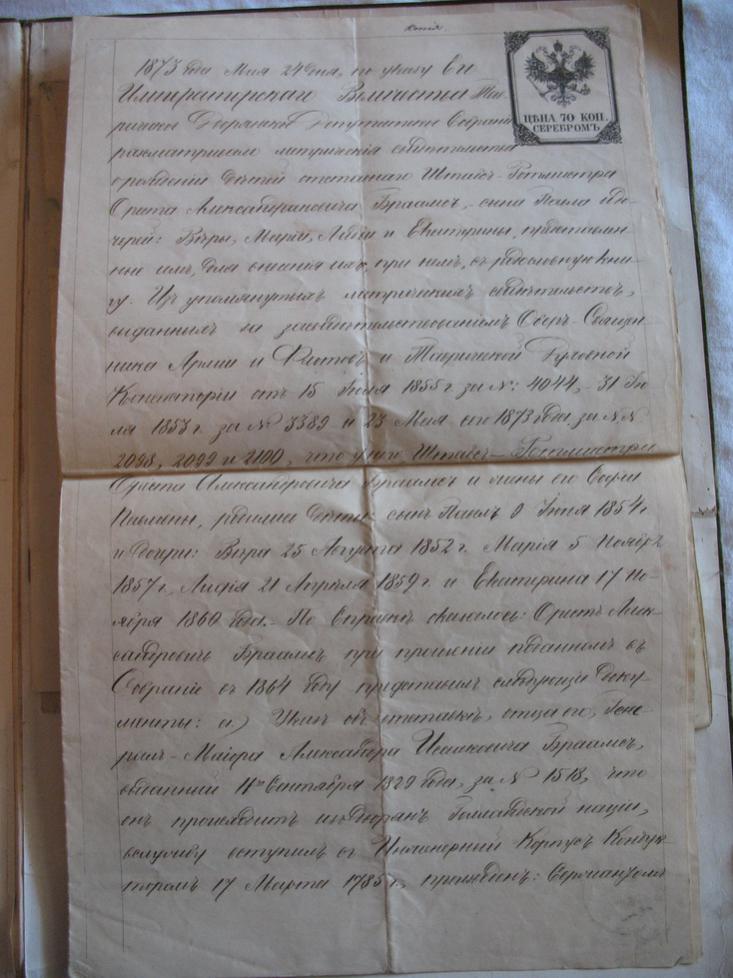 Копія.
ЦѢНА 70 КОП.
СЕРЕБРОМЪ.
1873 года Мая 24 дня, по указу Ея
Императорскаго Величества Тав-
рическое Дворянское Депутатское Собраніе
разсматривало метрическія свидѣтельства
о рожденіи дѣтей отставнаго Штабсъ-Ротмистра
Ореста Александровича Браамсъ, сына Павла и до-
черей: Вѣры, Маріи, Лидіи и Екатерины, представлен-
ные имъ, для внесенія ихъ, при немъ, въ родословную кни-
гу. Изъ упомянутыхъ метрическихъ свидѣтельствъ,
выданныхъ за засвидѣтельствованіемъ Оберъ-Священ-
ника Арміи и Флотовъ и Таврической Духовной
Консисторіи отъ 15 Іюня 1855 г. за №: 4044, 31 Ію-
ля 1853 г. за № 3389 и 23 Мая сего 1873 года за №№
2098, 2099 и 2100, что у него Штабсъ-Ротмистра
Ореста Александровича Браамсъ и жены его Софіи
Павловны, родились дѣти: сынъ Павелъ 9 Іюня 1854 г.
и дочери: Вѣра 25 Августа 1852 г. Марія 5 Ноября
1857 г. Лидія 21 Апрѣля 1859 г. и Екатерина 17 Но-
ября 1860 года. По справкѣ оказалось: Орестъ Алек-
сандровичъ Браамсъ при прошеніи поданномъ въ
Собраніе въ 1864 году представилъ слѣдующіе доку-
менты: а) Указъ объ отставкѣ, отца его, Гене-
ралъ-Маіора Александра Исааковича Браамсъ,
выданный 11го Сентября 1829 года, за № 1518, что
онъ происходитъ изъ дворянъ Голландской націи,
въ службу вступилъ въ Инженерный Корпусъ Кондук-
торомъ 17 Марта 1785 г., произведенъ: Сержантомъ